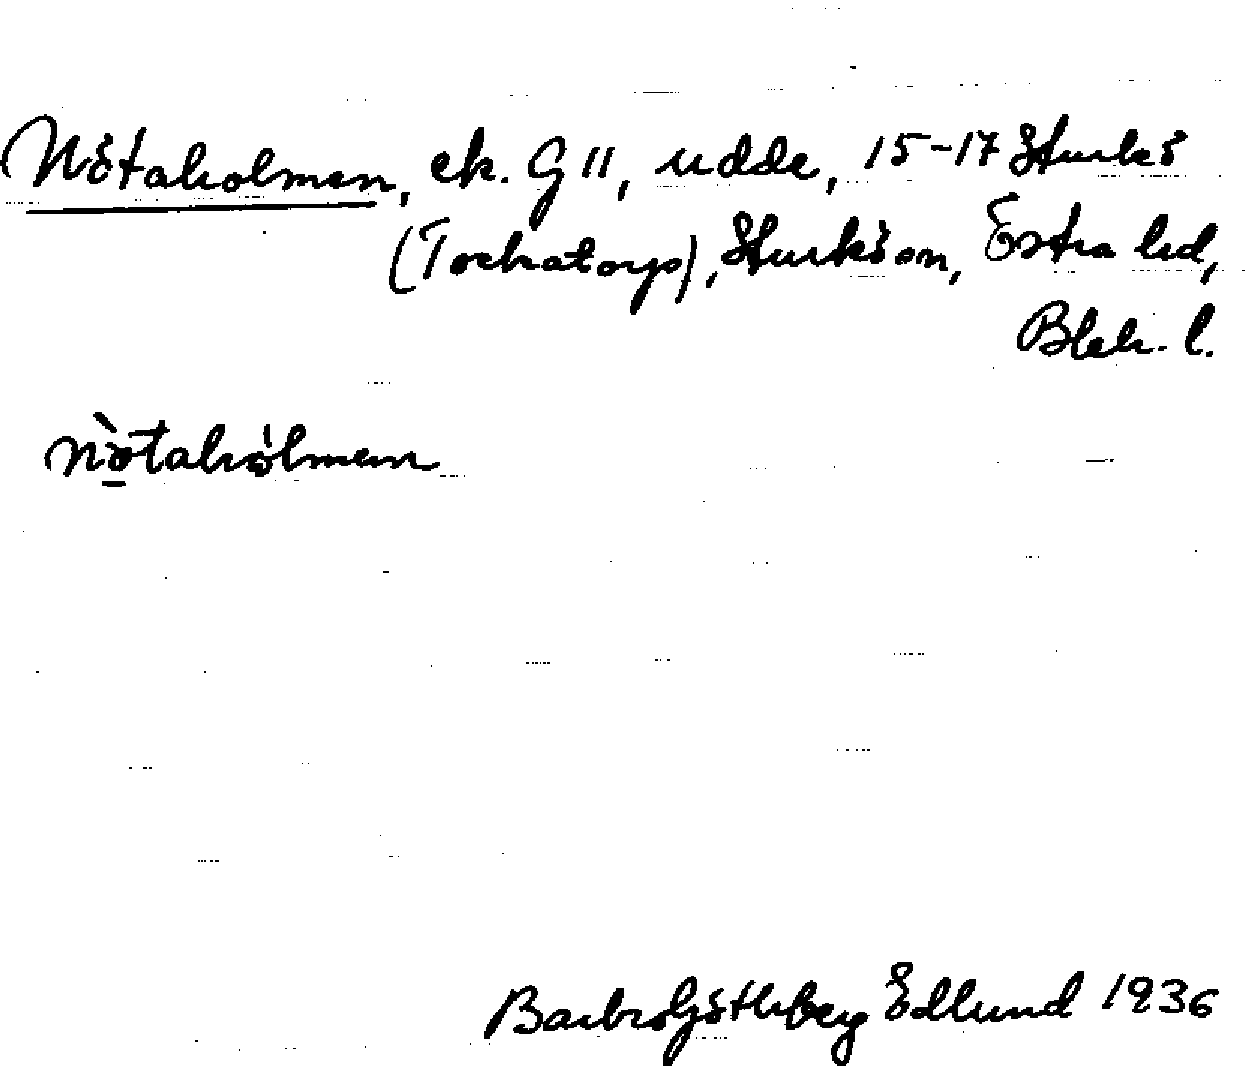 Nötaholmen, ek. G 11, udde, 15-17 Sturkö
(Tockatorp), Sturkö sn, Östra hd,
Blek. l.
nò̱taholmen
Barbro Götherberg Edlund 1936